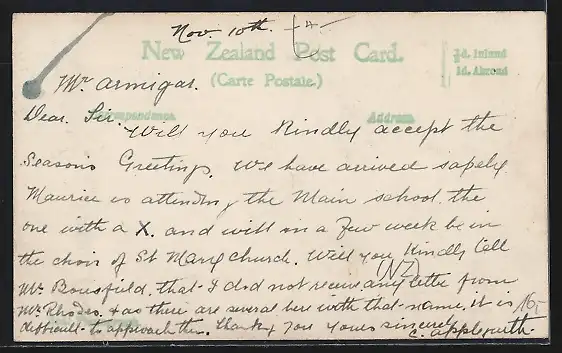 Nov. 10th.
New Zealand Post Card.
(Carte Postale.)
½d. Inland
1d. Abroad
Mr Armigar.
Correspondence.
Address.
Dear. Sir.
Will you Kindly accept the
Seasons Greetings. We have arrived safely.
Maurice is attending the Main school. the
one with a X. and will in a few week be in
the choir of St Mary church. Will you Kindly tell
(NZ)
Mr Bousfield. that I did not receive any letter from
Mr Rhodes. & as there are several here with that name. it is
difficult to approach them. Thanking you yours sincerely
C. Applegarth.